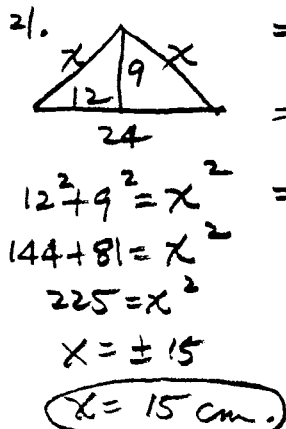 21.
=
x 9 x
12
=
24
12² + 9² = x² =
144 + 81 = x²
225 = x²
x = ± 15
x = 15 cm.